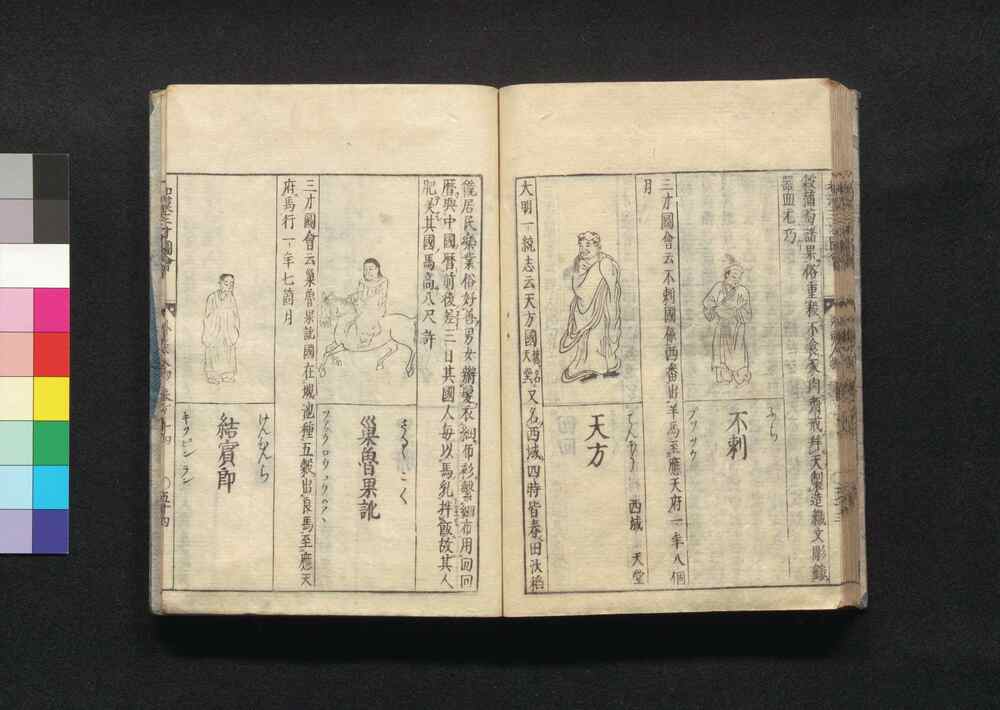 穀蒲萄諸果俗重殺不食豕肉齋戒拜天製造織文彫鏤
器皿尤巧
不剌
三才圖會云不剌國像西番出羊馬至應天府一年八個
月
天方
西域
天堂
大明一統志云天方國舊名天堂又名西域四時皆春田沃稻
饒居民樂業俗好善男女辮髮衣細布彩繫細布用回回
曆與中國曆前後差三日其國人每以馬乳拌飯故其人
肥美其國馬高八尺許
巢魯果訛
三才圖會云巢魯果訛國在城池種五穀出良馬至應天
府馬行一年七箇月
結賓郎
キツ ピン ラン
五十四